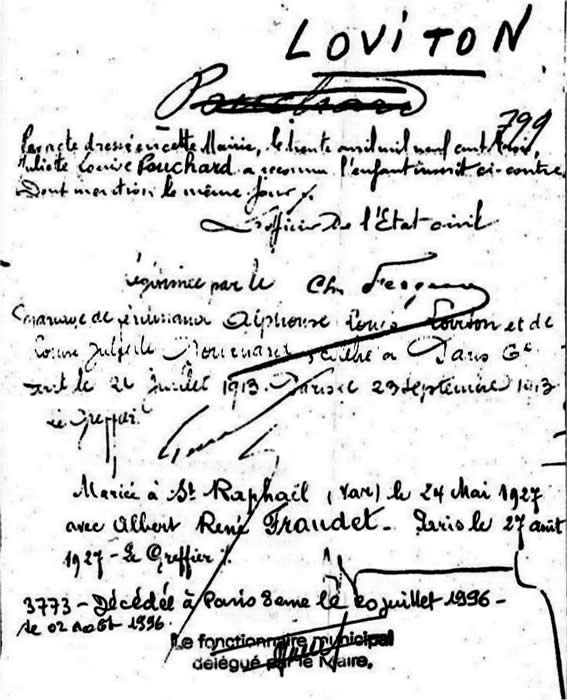 LOVITON
Pouchard
799
Par acte dressé en cette Mairie, le trente avril mil neuf cent trois,
Juliette Louise Pouchard a reconnu l'enfant inscrit ci-contre.
Dont mention le même jour.
L'officier De l'Etat-civil
Légitimée par le
mariage de Alphonse Louis Loviton et de
Louise Juliette Pouchard célébré à Paris 6e
le 21 Juillet 1913. Paris le 23 septembre 1913
Le Greffier
Mariée à St Raphaël (Var) le 24 Mai 1927
avec Albert René Fraudet - Paris le 27 août
1927 - Le Greffier %.
3773 - Décédée à Paris 8eme le 20 juillet 1996 -
le 02 août 1996.
Le fonctionnaire municipal
délégué par le Maire,